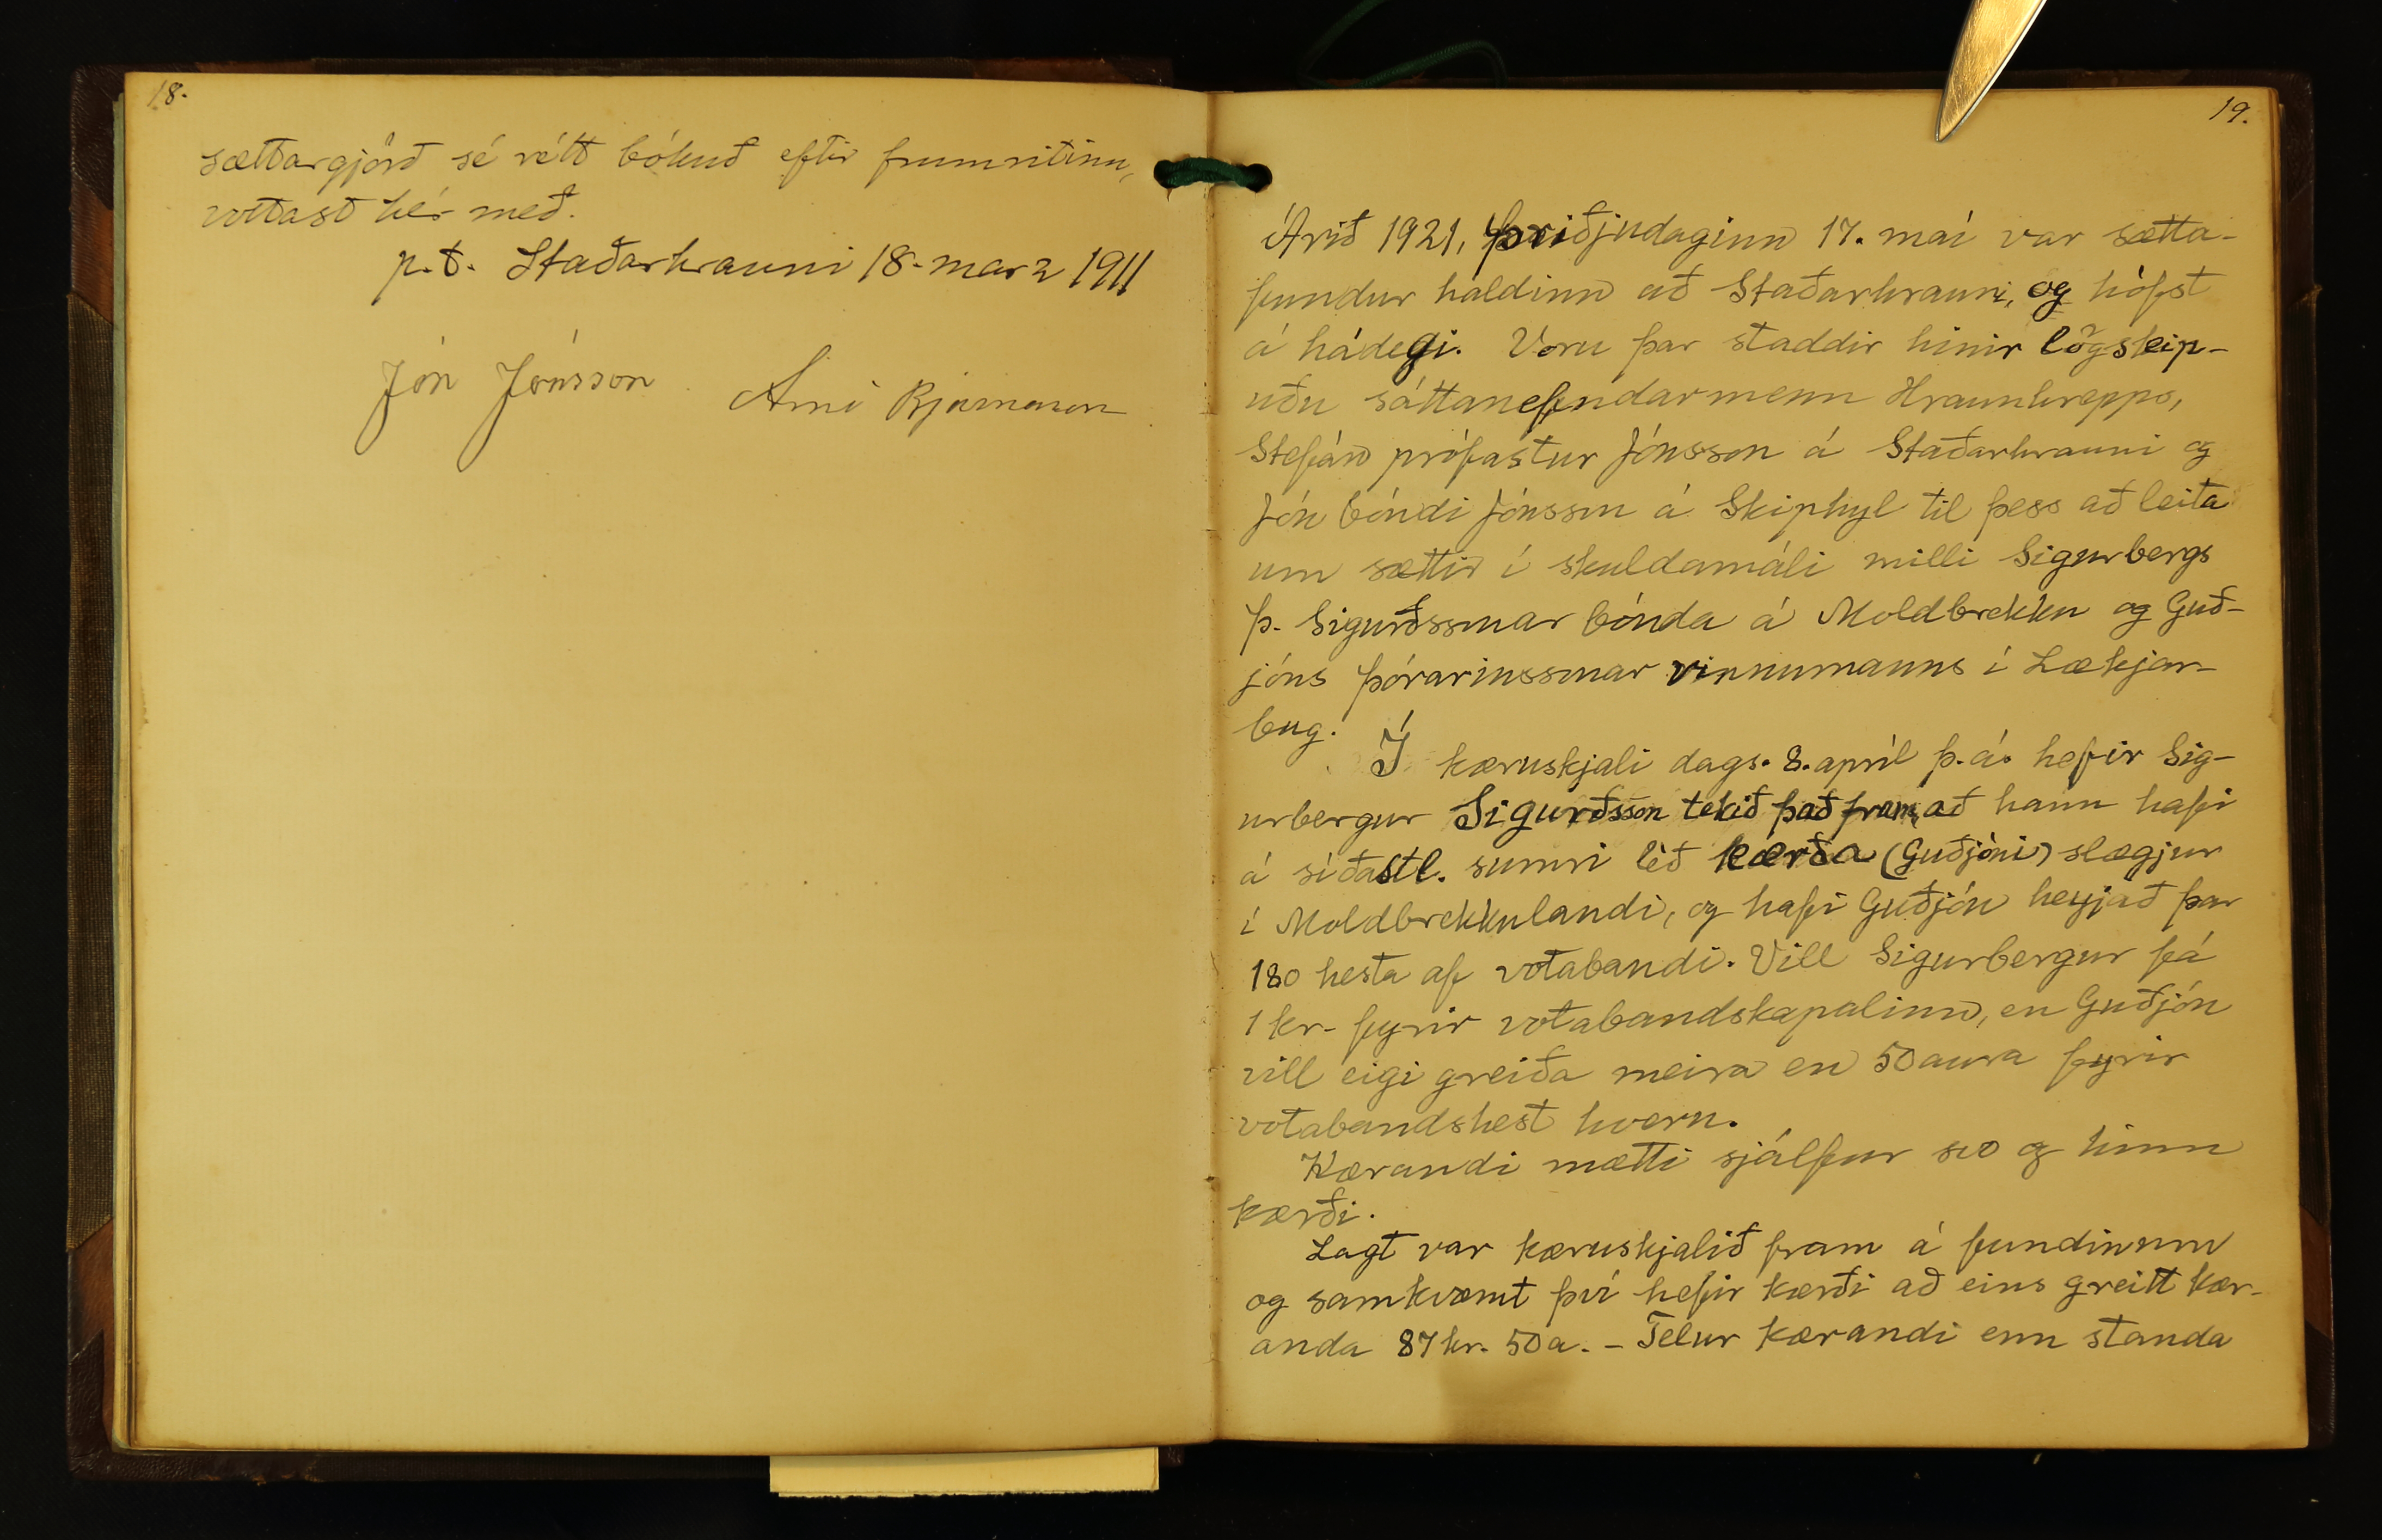 18.
sættargjörð sé rétt bókuð eftir frumritinu,
vottast hér með.
p.t. Staðarhrauni 18. marz 1911
Jón Jónsson. Arni Bjarnason
19.
Árið 1921, þriðjudaginn 17. maí var sætta-
fundur haldinn að Staðarhrauni, og hófst
á hádegi. Voru þar staddir hinir lögskip-
uðu sáttanefndarmenn Hraunhrepps,
Stefán prófastur Jónsson á Staðarhrauni og
Jón bóndi Jónsson á Skiphyl til þess að leita
um sættir í skuldamáli milli Sigurbergs
Þ. Sigurðssonar bónda á Moldbrekku og Guð-
jóns Þórarinssonar vinnumanns í Lækjar-
bug.
Í kæruskjali dags. 8. apríl þ.á. hefir Sig-
urbergur Sigurðsson tekið það fram, að hann hafi
á síðastl. sumri léð kærða (Guðjóni) slægjur
í Moldbrekkulandi, og hafi Guðjón heyjað þar
180 hesta af votabandi. Vill Sigurbergur fá
1 kr. fyrir votabandskapalinn, en Guðjón
vill eigi greiða meira en 50 aura fyrir
votabandshest hvern.
Kærandi mætti sjálfur svo og hinn
kærði.
Lagt var kæruskjalið fram á fundinum
og samkvæmt því hefir kærði að eins greitt kær-
anda 87 kr. 50 a. - Telur kærandi enn standa